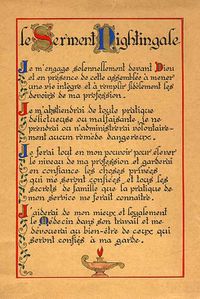 le Serment Nightingale
Je m'engage solennellement devant Dieu
et en présence de cette assemblée à mener
une vie intègre et à remplir fidèlement les
devoirs de ma profession.
Je m'abstiendrai de toute pratique
délictueuse ou malfaisante. je ne
prendrai ou n'administrerai volontaire-
ment aucun remède dangereux.
Je ferai tout en mon pouvoir pour élever
le niveau de ma profession et garderai
en confiance les choses privées
qui me seront confiées, et tous les
secrets de famille que la pratique de
mon service me ferait connaître.
J'aiderai de mon mieux et loyalement
le Médecin dans son travail et me
dévouerai au bien-être de ceux qui
seront confiés à ma garde.